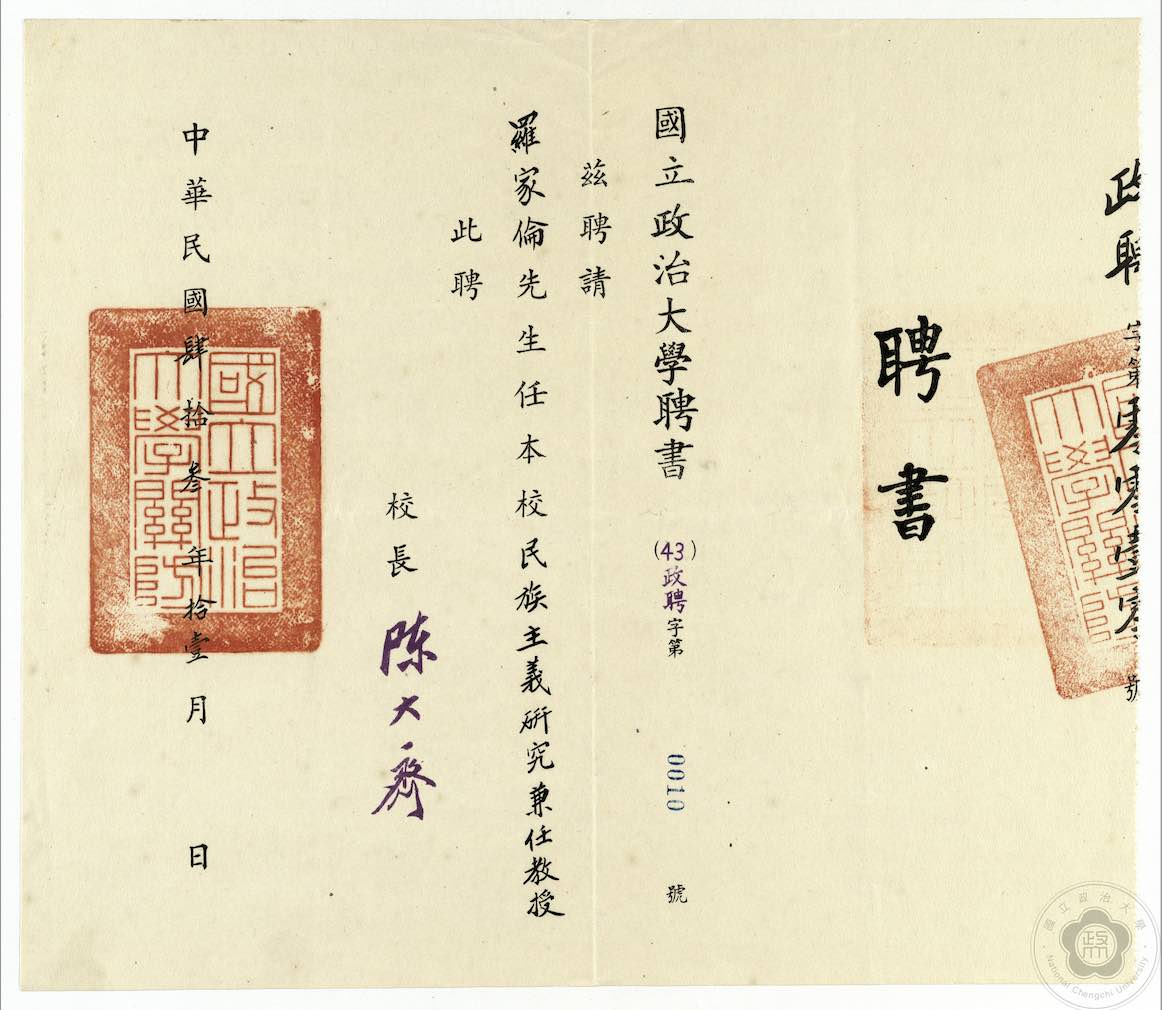 政聘字第零零壹零號
聘書
國立政治大學聘書 (43)政聘字第 0010 號
茲聘請
羅家倫先生任本校民族主義研究兼任教授
此聘
校長 陳大齊
中華民國肆拾叁年拾壹月 日
國立政治大學關防
國立政治大學
National Chengchi University